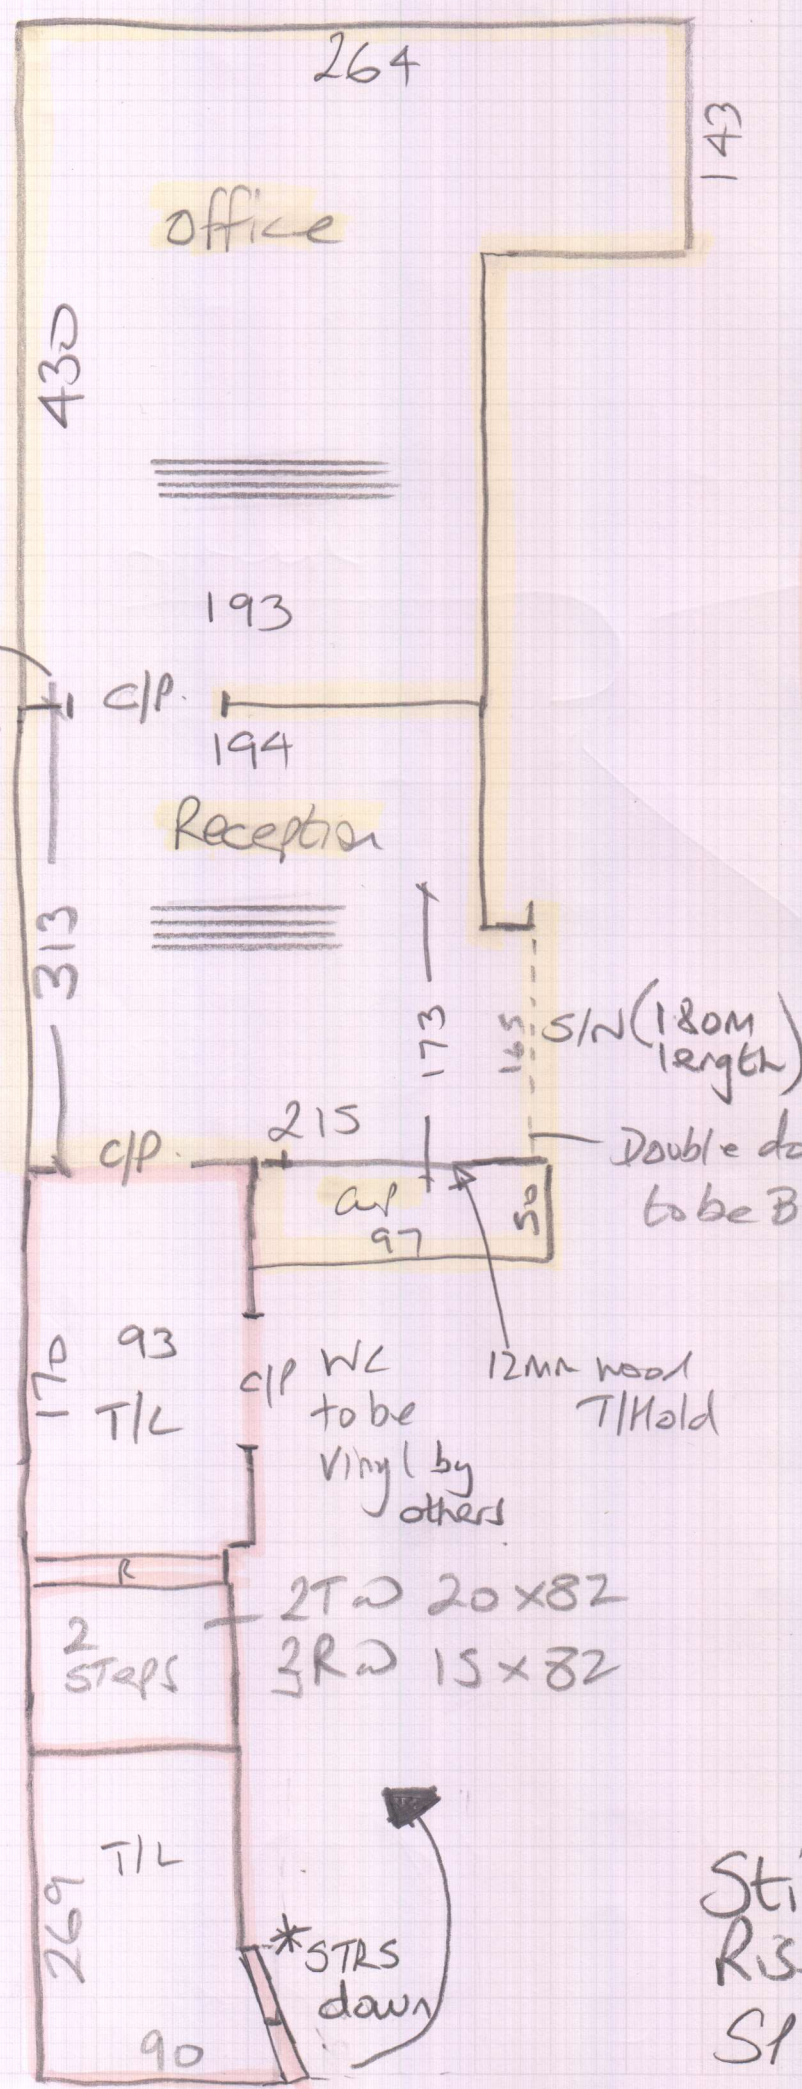 264
143
office
430
193
C/P.
194
Reception
313
173
165
S/N (1.80M
length)
Double do
to be B
C/P.
215
cup
97
50
93
170
T/L
C/P
WC
to be
vinyl by
others
12mm wood
T/Hold
R
2
steps
2T@ 20x82
3R@ 15x82
T/L
269
*STRS
down
90
Sti
Ris
SP